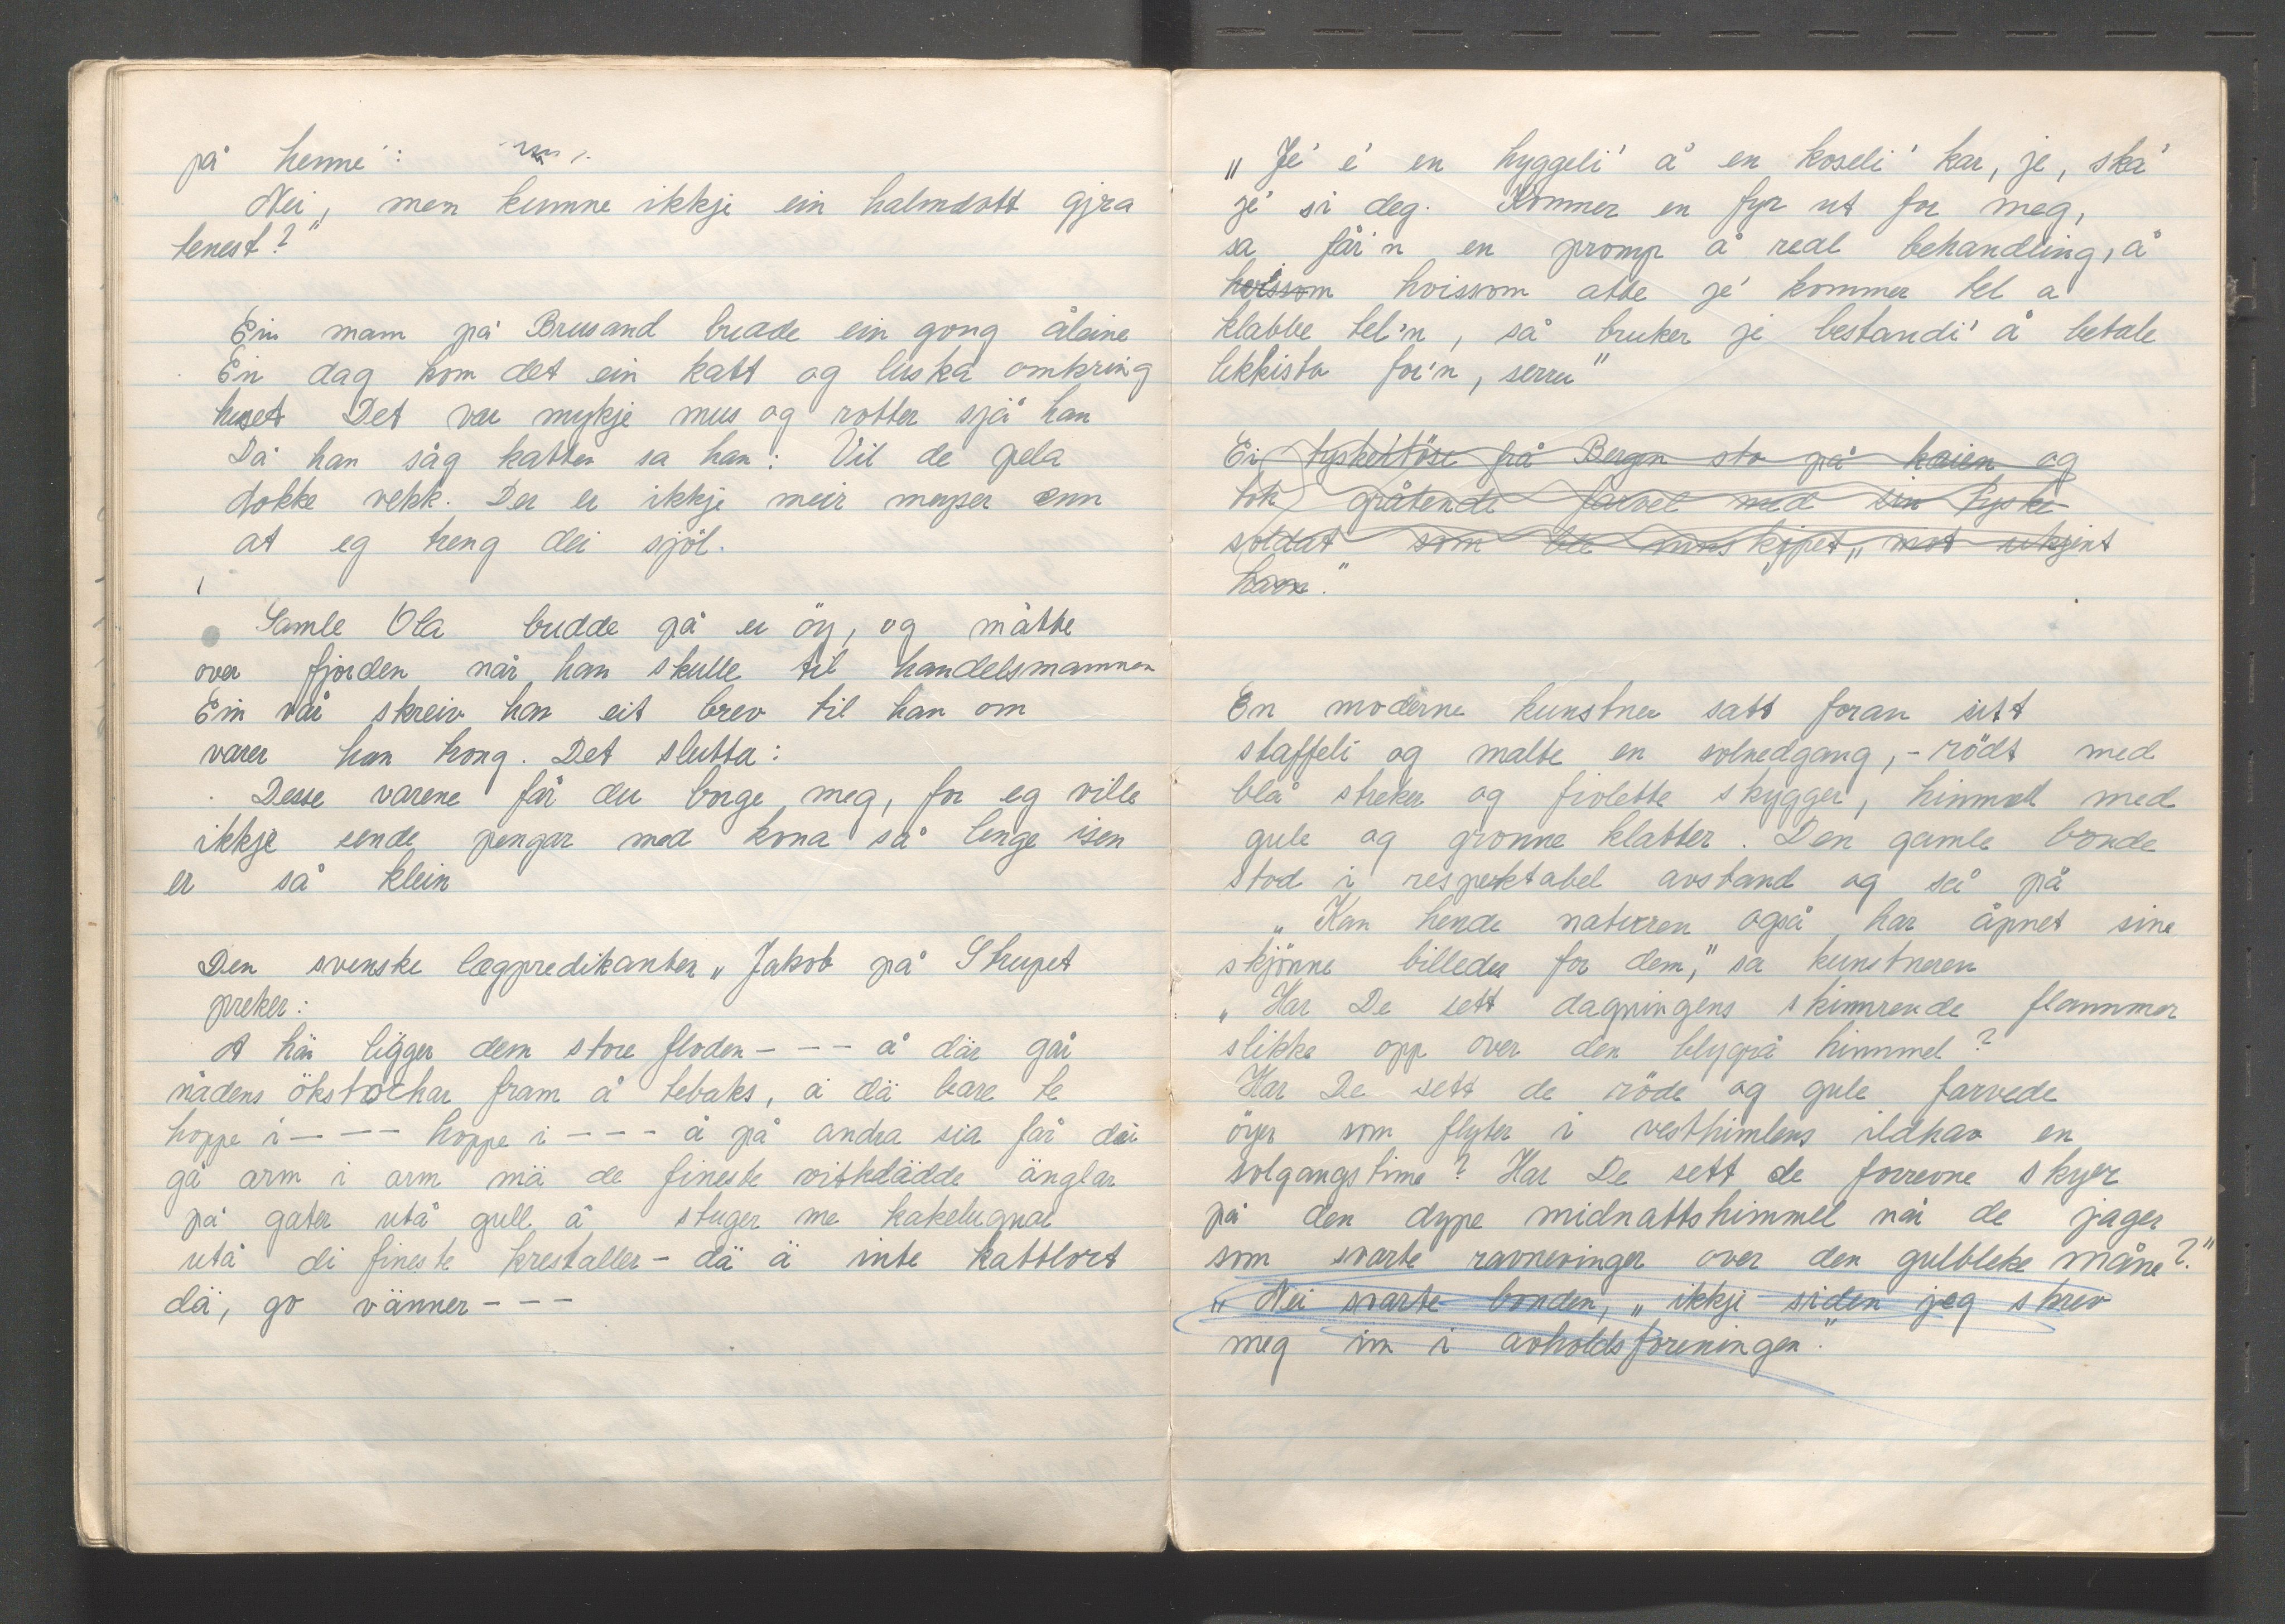 på henne:
Nei, men kunne ikkje ein halmdott gjra
tenest?"
Ein mann på Brusand buade ein gong åleine
Ein dag kom det ein katt og luska omkring
huset Det var mykje mus og rotter sjå han
Då han såg katten sa han: Vil de pela
dokke vekk. Der er ikkje meir myser enn
at eg treng dei sjöl.
Gamle Ola budde på ei öy, og måtte
over fjorden når han skulle til handelsmannen
Ein vår skreiv han eit brev til han om
varer han trong. Det slutta:
Desse varene får du borge meg, for eg ville
ikkje sende pengar med kona så lenge isen
er så klein
Den svenske lægpredikanten „Jakob på Strupet
preker:
A här ligger dem store floden - - - å där går
nådens ökstockar fram å tebaks, å dä bare te
hoppe i - - - hoppe i - - - å på andra sia får dei
gå arm i arm mä de fineste vitklädde änglar
på gater utå gull å stuger me kakelugnar
utå di fineste krestaller - dä ä inte kattlort
dä, go vänner - - -
„Je' e' en hyggeli' å en koseli' kar, je, ska'
je' si deg. Kommer en fyr ut for meg,
sa får'n en promp å real behandling, å
hvissom hvissom atte je' kommer tel a
klabbe tel'n, så bruker je bestandi' å betale
likkista for'n, serru"
Ei tyskertöse frå Bergen sto på kaien og
tok gråtende farvel med sin tyske
soldat som ble innskjpet „mot ukjent
havn."
En moderne kunstner satt foran sitt
staffeli og malte en solnedgang, - rödt med
blå streker og fiolette skygger, himmel med
gule og gronne klatter. Den gamle bonde
stod i respektabel avstand og så på
„Kan hende naturen også har åpnet sine
skjönne billeder for dem," sa kunstneren
„Har De sett dagningens skimrende flammer
slikke opp over den blygrå himmel?
Har De sett de röde og gule farvede
öyer som flyter i vesthimlens ildhav en
solgangstime? Har De sett de forrevne skyer
på den dype midnattshimmel når de jager
som svarte ravnevinger over den gulbleke måne?"
„Nei svarte bonden, „ikkje siden jeg skrev
meg inn i avholdsforeningen."